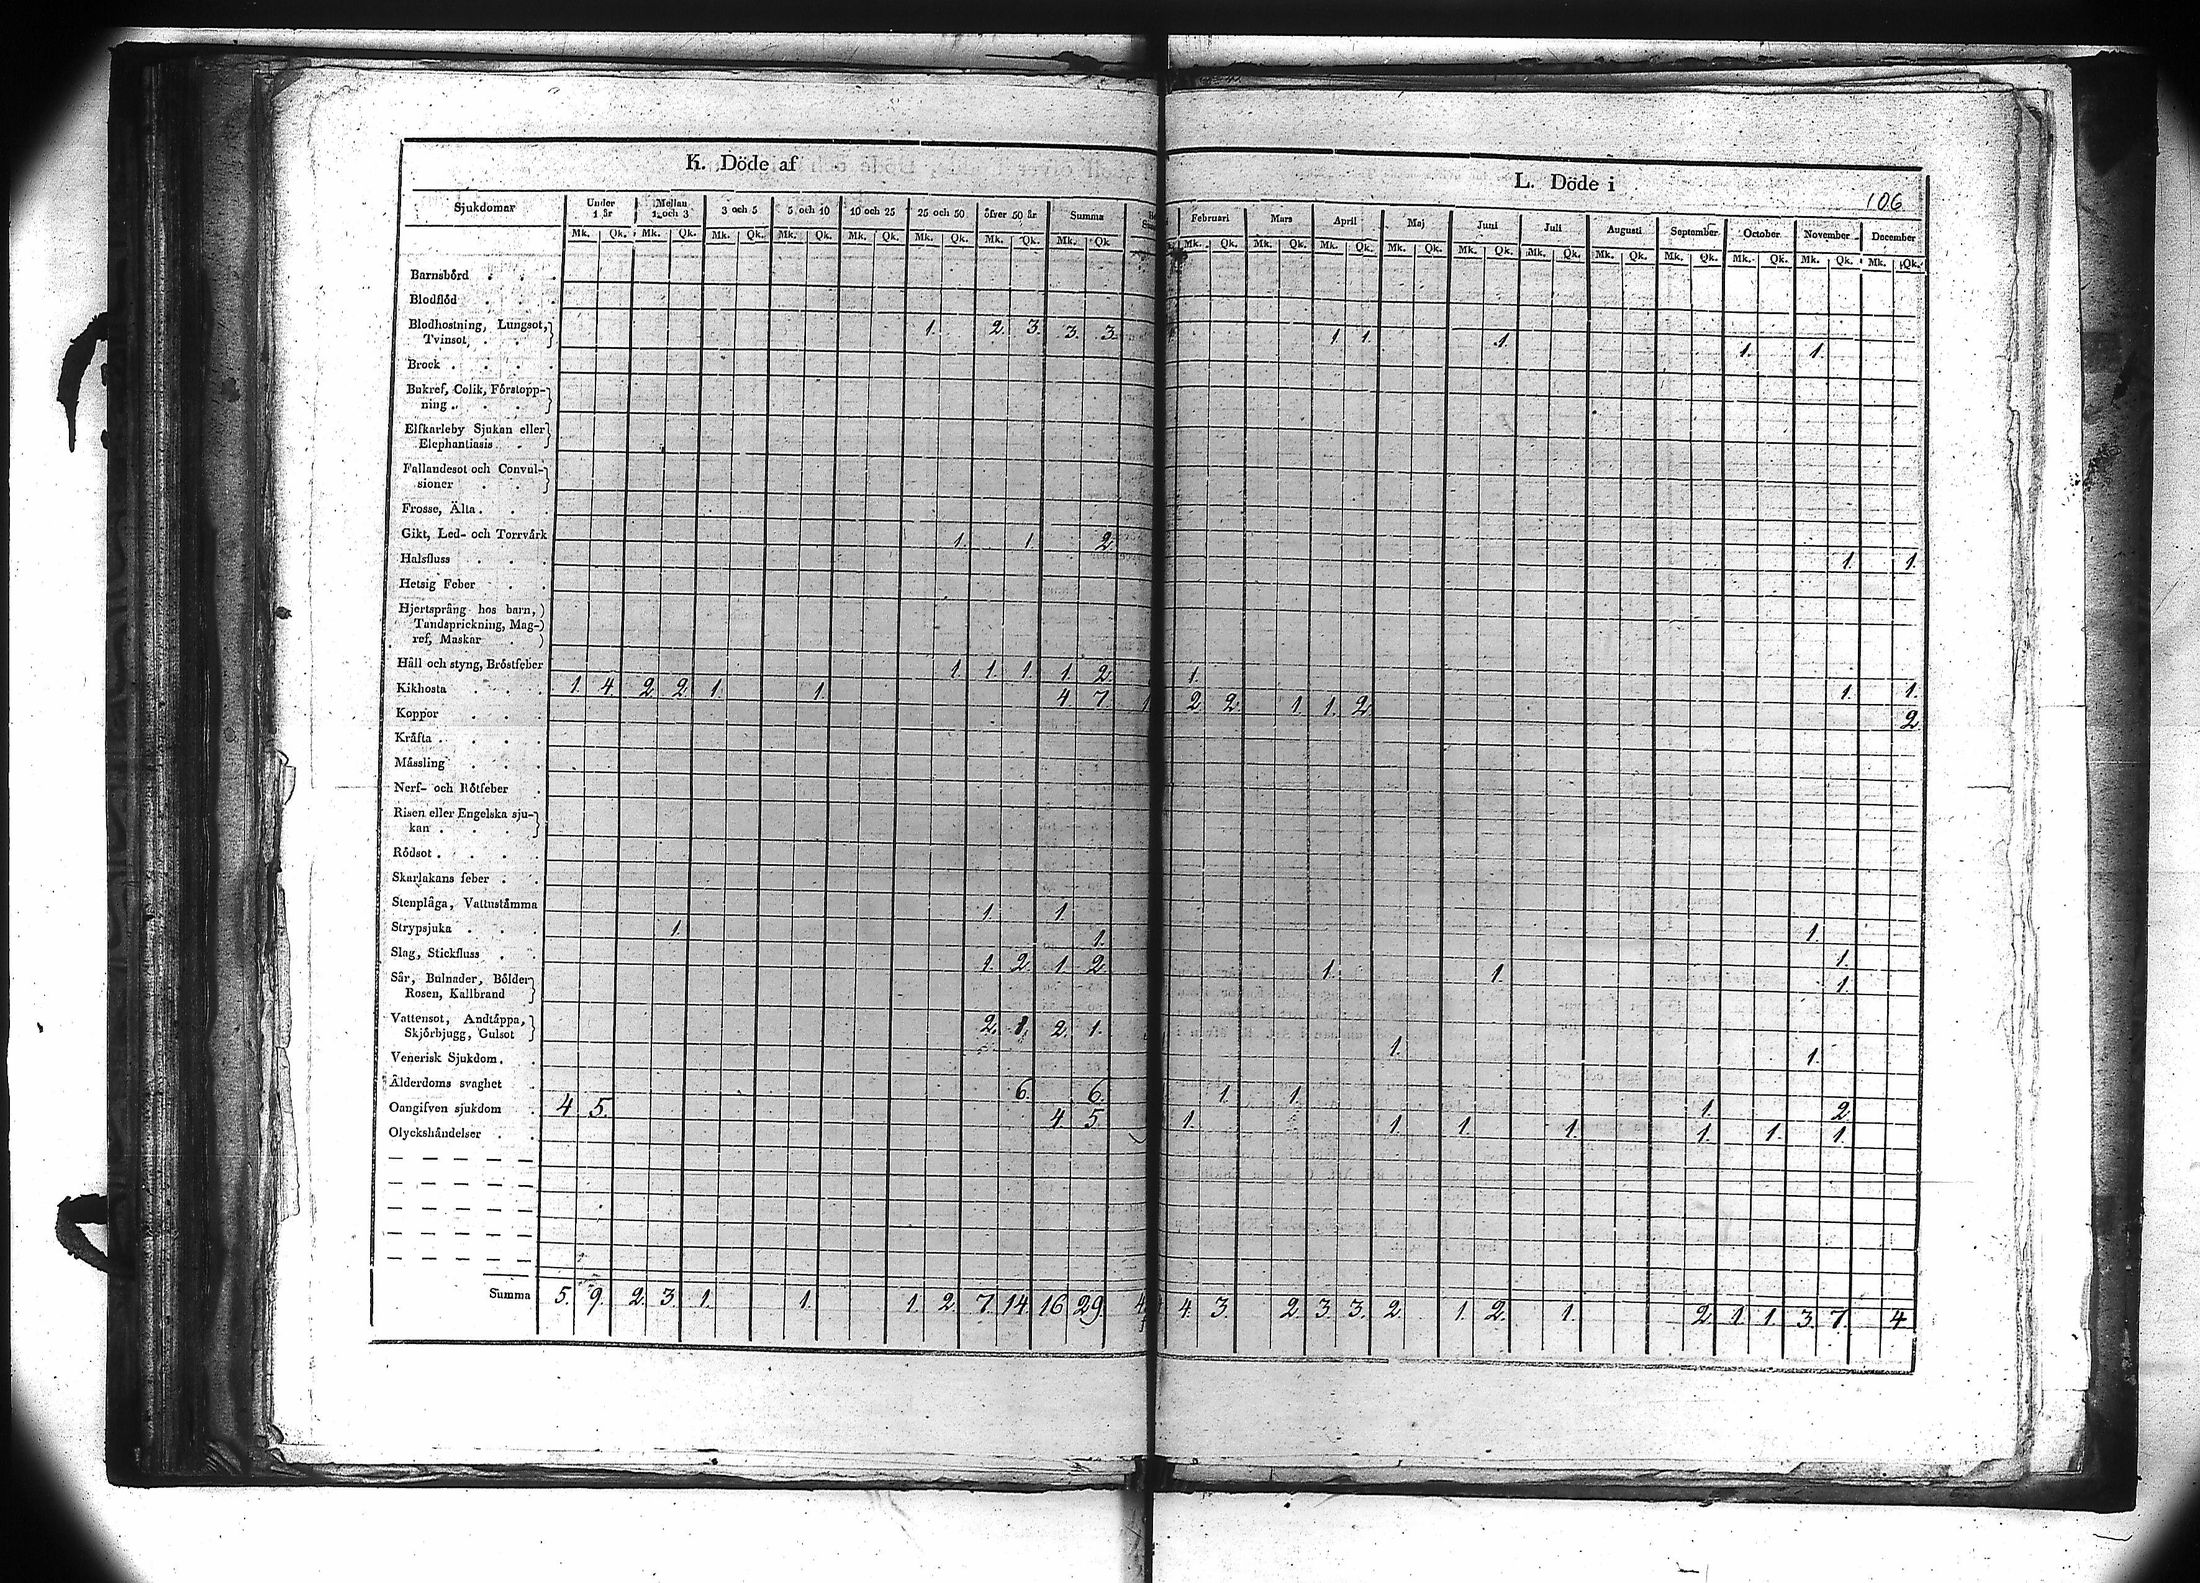 K. Döde af
L. Döde i
106
Sjukdomar Under 1 år Mellan 1 och 3 3 och 5 5 och 10 10 och 25 25 och 50 öfver 50 år Summa Februari Mars April Maj Juni Juli Augusti September October November December
Mk. Qk. Mk. Qk. Mk. Qk. Mk. Qk. Mk. Qk. Mk. Qk. Mk. Qk. Mk. Qk. Mk. Qk. Mk. Qk. Mk. Qk. Mk. Qk. Mk. Qk. Mk. Qk. Mk. Qk. Mk. Qk. Mk. Qk. Mk. Qk. Mk. Qk.
Barnsbörd . . .
Blodflöd . . .
Blodhostning, Lungsot,
Tvinsot, . . 1. 2. 3. 3. 3. 1. 1. 1. 1. 1.
Brock . . . .
Bukref, Colik, Förstopp-
ning . . . .
Elfkarleby Sjukan eller
Elephantiasis .
Fallandesot och Convul-
sioner . . .
Frosse, Älta . . .
Gikt, Led- och Torrvärk 1. 1. 2. 1. 1.
Halsfluss . . .
Hetsig Feber . .
Hjertsprång hos barn,
Tandsprickning, Mag-
ref, Maskar .
Håll och styng, Bröstfeber 1. 1. 1. 1. 2. 1. 1. 1.
Kikhosta . . . 1. 4. 2. 2. 1. 1. 4. 7. 1. 2. 2. 1. 1. 2. 2
Koppor . . .
Kräfta . . . .
Mässling . . .
Nerf- och Rötfeber .
Risen eller Engelska sju-
kan . . . .
Rödsot . . . .
Skarlakans feber . .
Stenplåga, Vattustämma 1. 1. 1.
Strypsjuka . . . 1. 1. 1.
Slag, Stickfluss . . 1. 2. 1. 2. 1. 1. 1.
Sår, Bulnader, Bölder
Rosen, Kallbrand
Vattensot, Andtäppa,
Skjörbjugg, Gulsot 2. 1. 2. 1. 1. 1.
Venerisk Sjukdom . .
Ålderdoms svaghet . 6. 6. 1. 1. 1. 2.
Oangifven sjukdom . 4. 5. 4. 5. 1. 1. 1. 1. 1. 1. 1.
Olyckshändelser . .
Summa 5. 9. 2. 3. 1. 1. 1. 2. 7. 14. 16 29. 4. 3. 2. 3. 3. 2. 1. 2. 1. 2. 1. 1. 3. 7. 4